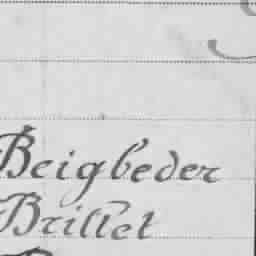 Beigbeder
Brillet